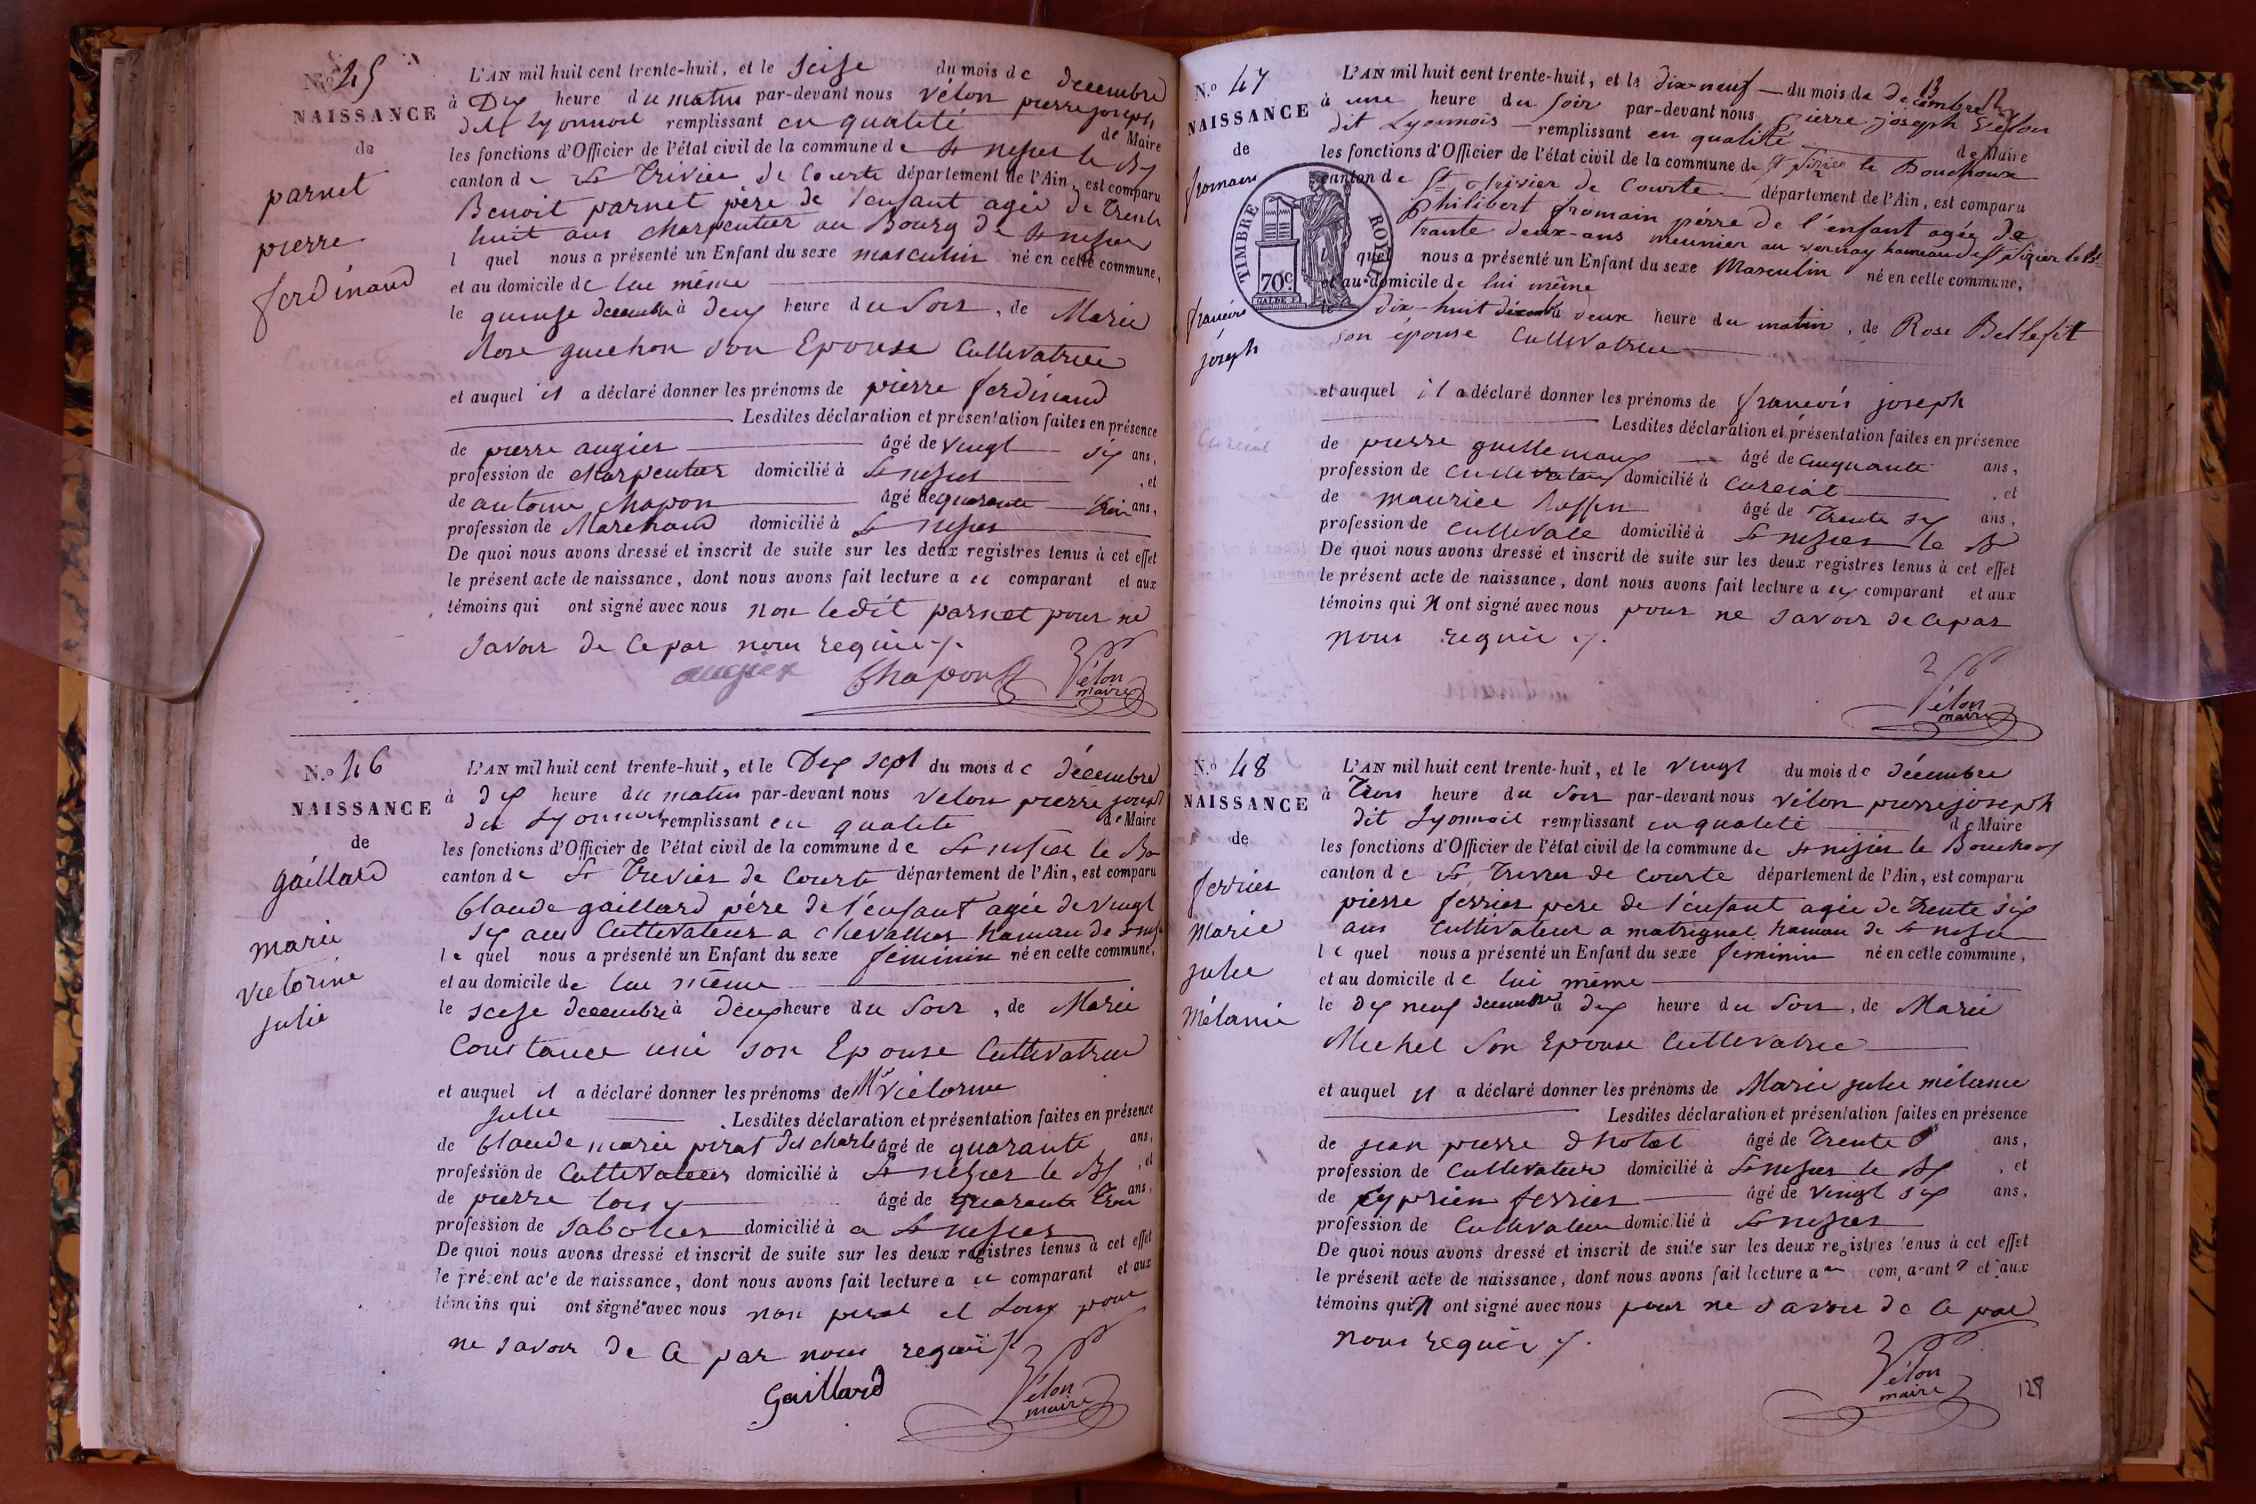 N.o 45
NAISSANCE
de
parnet
pierre
ferdinand
L'AN mil huit cent trente-huit, et le seise du mois de decembre
à Dix heure du matin par-devant nous vélon pierre joseph
dit Lyonnois remplissant en qualité de Maire
les fonctions d'Officier de l'état civil de la commune de St nisier le Bx
canton de St Trivier de Courte département de l'Ain, est comparu
Benoit parnet père de l'enfant agée de Trente
huit ans charpentier au Bourg de St nisier
l quel nous a présenté un Enfant du sexe masculin né en cette commune,
et au domicile de lui même
le quinse decembre à deux heure du soir, de Marie
Rose guichon son Epouse Cultivatrice
et auquel il a déclaré donner les prénoms de pierre ferdinand
Lesdites déclaration et présentation faites en présence
de pierre augier âgé de vingt six ans,
profession de charpentier domicilié à St nisier, et
de antoine chapon âgé de quarante trois ans,
profession de Marchand domicilié à St nisier
De quoi nous avons dressé et inscrit de suite sur les deux registres tenus à cet effet
le présent acte de naissance, dont nous avons fait lecture a ce comparant et aux
témoins qui ont signé avec nous non ledit parnet pour ne
savoir de ce par nous requis
augier Chapon Vélon
maire
N.o 46
NAISSANCE
de
gaillard
marie
victorine
julie
L'AN mil huit cent trente-huit, et le Dix sept du mois de décembre
à dix heure du matin par-devant nous vélon pierre joseph
dit Lyonnois remplissant en qualité de Maire
les fonctions d'Officier de l'état civil de la commune de St nisier le Bo
canton de St Trivier de Courte département de l'Ain, est comparu
Claude gaillard père de l'enfant agée de vingt
six ans Cultivateur a chevallier hamau de St nisi
le quel nous a présenté un Enfant du sexe feminin né en cette commune,
et au domicile de lui même
le seise decembre à deux heure du soir, de Marie
Constance son Epouse Cultivatrice
et auquel il a déclaré donner les prénoms de Mie Victorine
julie Lesdites déclaration et présentation faites en présence
de Claude marie pirat dit charle âgé de quarante ans,
profession de Cultivateur domicilié à St nisier le Bx, et
de pierre âgé de quarante trois ans,
profession de sabotier domicilié à a St nisier
De quoi nous avons dressé et inscrit de suite sur les deux registres tenus à cet effet
le présent acte de naissance, dont nous avons fait lecture a ce comparant et aux
témoins qui ont signé avec nous non pirat et pour
ne savoir de ce par nous requis
Gaillard Vélon
maire
N.o 47
NAISSANCE
de
fromain
françois
joseph
TIMBRE ROYAL
70c.
L'AN mil huit cent trente-huit, et le dix-neuf du mois de Décembre
à une heure du soir par-devant nous pierre joseph Vélon
dit Lyonnois remplissant en qualité de Maire
les fonctions d'Officier de l'état civil de la commune de St nizier le Bouchoux
canton de St trivier de Courte département de l'Ain, est comparu
Philibert fromain pérre de l'énfant agée de
trante deux-ans meunier au vernay hameau de St nizier le Bx
quel nous a présenté un Enfant du sexe Masculin né en cette commune,
et au domicile de lui même
le dix-huit décembre à deux heure du matin, de Rose Bellefit
son épouse Cultivatrice
et auquel il a déclaré donner les prénoms de françois joseph
Lesdites déclaration et présentation faites en présence
de pierre guillemaux âgé de Cinquante ans,
profession de Cultivateur domicilié à Curciat, et
de maurice âgé de Trente six ans,
profession de Cultivate domicilié à St nisier le B
De quoi nous avons dressé et inscrit de suite sur les deux registres tenus à cet effet
le présent acte de naissance, dont nous avons fait lecture a ce comparant et aux
témoins qui n ont signé avec nous pour ne savoir de ce par
nous requis
Vélon
maire
N.o 48
NAISSANCE
de
ferrier
Marie
julie
Mélanie
L'AN mil huit cent trente-huit, et le vingt du mois de décembre
à Trois heure du soir par-devant nous vélon pierre joseph
dit Lyonnois remplissant en qualité de Maire
les fonctions d'Officier de l'état civil de la commune de St nisier le Bouchoux
canton de St Trivier de Courte département de l'Ain, est comparu
pierre ferrier père de l'énfant agée de Trente six
ans Cultivateur a matrignat hamau de St nisier
le quel nous a présenté un Enfant du sexe feminin né en cette commune,
et au domicile de lui même
le dix neuf decembre à dix heure du soir, de Marie
Michel son Epouse Cultivatrice
et auquel il a déclaré donner les prénoms de Marie julie mélanie
Lesdites déclaration et présentation faites en présence
de jean pierre dhotel âgé de Trente ans,
profession de Cultivateur domicilié à St nisier le Bx, et
de Cyprien ferrier âgé de vingt six ans,
profession de Cultivateur domicilié à St nisier
De quoi nous avons dressé et inscrit de suite sur les deux registres tenus à cet effet
le présent acte de naissance, dont nous avons fait lecture a comparant et aux
témoins qui n ont signé avec nous pour ne savoir de ce par
nous requis
Vélon
maire
128